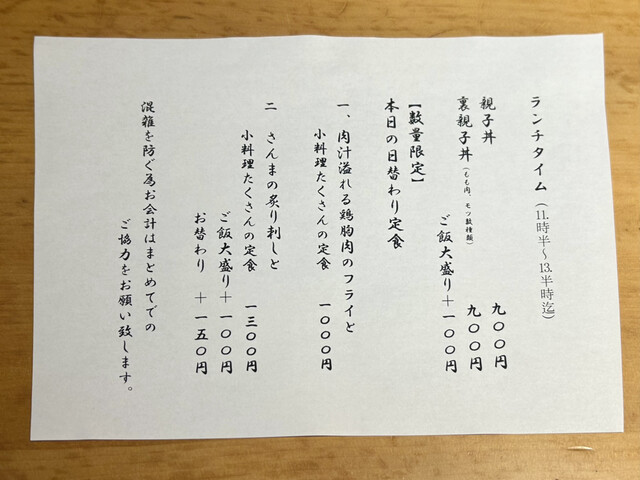 ランチタイム（11.時半〜13.半時迄）
親子丼　九〇〇円
裏親子丼（もも肉、モツ数種類）　九〇〇円
ご飯大盛り＋一〇〇円
【数量限定】
本日の日替わり定食
一、肉汁溢れる鶏胸肉のフライと
小料理たくさんの定食　一〇〇〇円
二　さんまの炙り刺しと
小料理たくさんの定食　一三〇〇円
ご飯大盛り＋一〇〇円
お替わり　＋一五〇円
混雑を防ぐ為お会計はまとめてでの
ご協力をお願い致します。